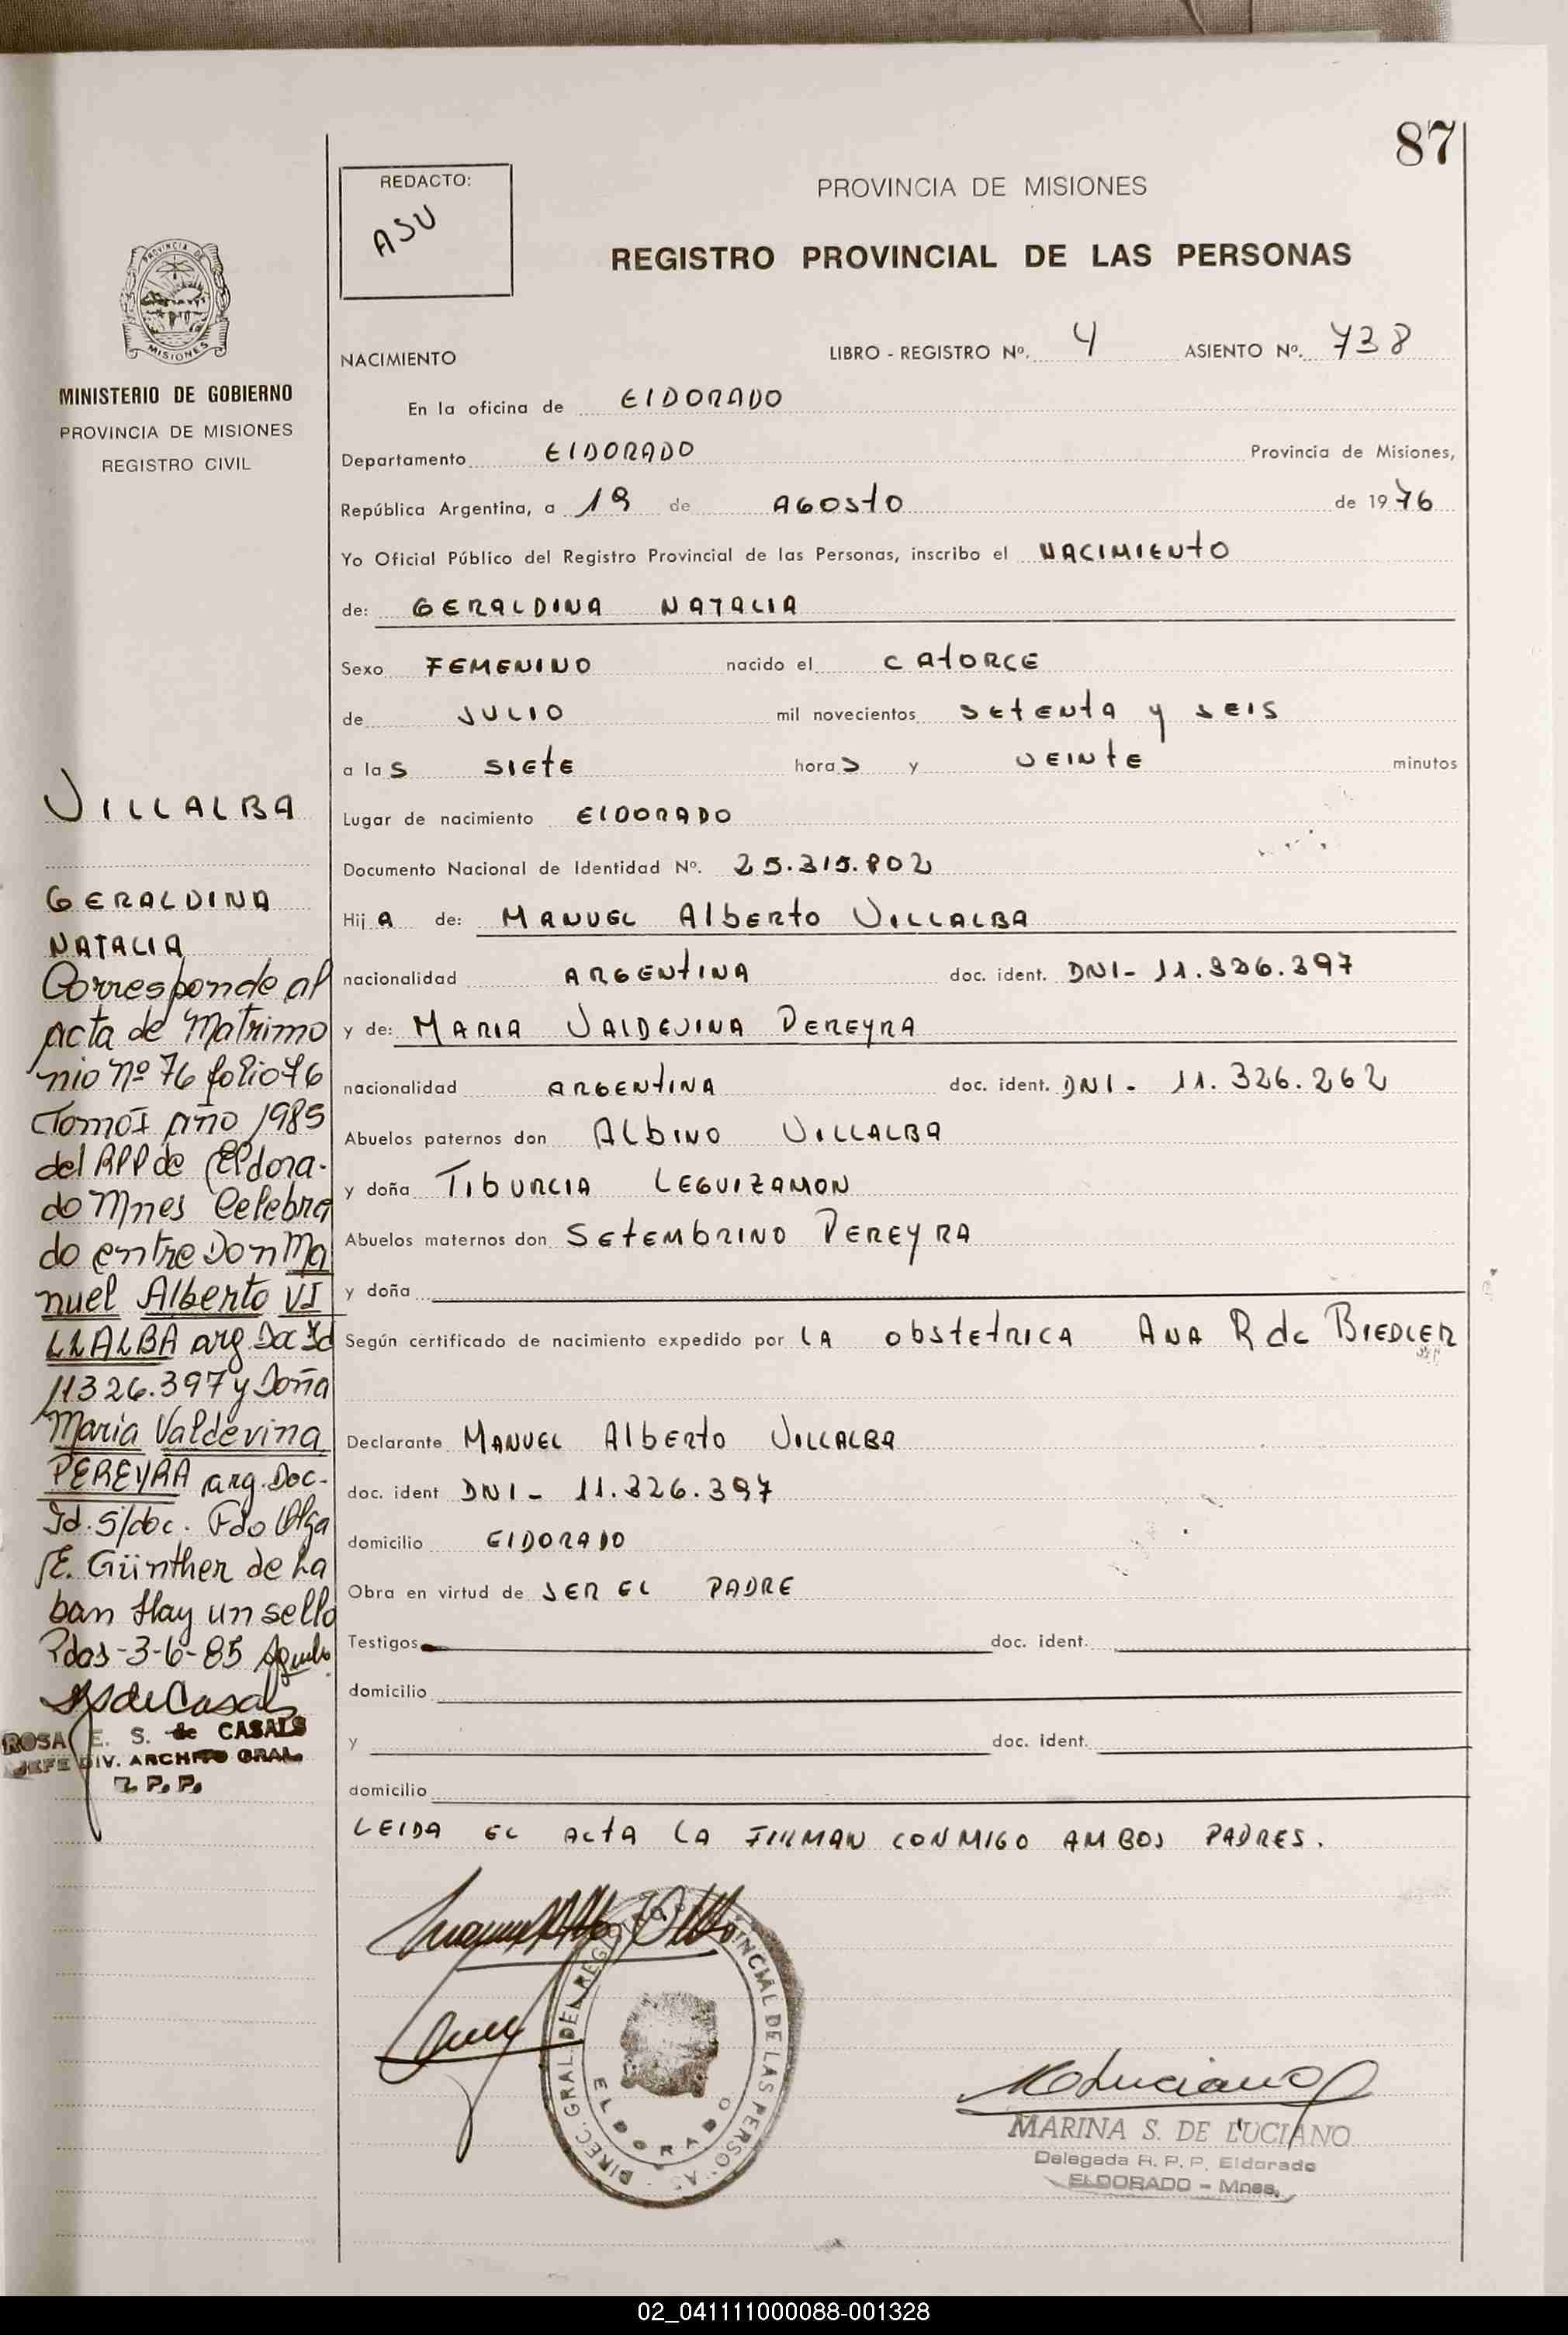 87
REDACTO:
ASU
PROVINCIA DE MISIONES
REGISTRO PROVINCIAL DE LAS PERSONAS
PROVINCIA DE
MISIONES
MINISTERIO DE GOBIERNO
PROVINCIA DE MISIONES
REGISTRO CIVIL
NACIMIENTO
LIBRO - REGISTRO Nº. 4 ASIENTO Nº. 738
En la oficina de ElDORADO
Departamento ElDORADO Provincia de Misiones,
República Argentina, a 19 de AGOSTO de 1976
Yo Oficial Público del Registro Provincial de las Personas, inscribo el NACIMIENTO
de: GERALDINA NATALIA
Sexo FEMENINO nacido el CATORCE
de JULIO mil novecientos SETENTA y SEIS
a las SIETE horas y VEINTE minutos
Lugar de nacimiento ElDORADO
Documento Nacional de Identidad Nº. 25.315.802
Hija de: MANUEL Alberto VILLALBA
nacionalidad ARGENTINA doc. ident. DNI- 11.326.397
y de: MARIA VALDEVINA PEREYRA
nacionalidad ARGENTINA doc. ident. DNI - 11.326.262
Abuelos paternos don ALbINO VILLALBA
y doña TIbURCIA LEGUIZAMON
Abuelos maternos don SETEMBRINO PEREYRA
y doña
Según certificado de nacimiento expedido por LA ObSTETRICA ANA R de BIEDLER
Declarante MANUEL Alberto VILLALBA
doc. ident DNI - 11.326.397
domicilio ElDORADO
Obra en virtud de SER EL PADRE
Testigos doc. ident.
domicilio
y doc. ident.
domicilio
LEIDA EL ACTA LA FIRMAN CONMIGO AMBOS PADRES.
VILLALBA
GERALDINA
NATALIA
Corresponde al
acta de Matrimo
nio nº 76 folio 76
Tomo I año 1985
del RPP de Eldora-
do Mnes Celebra
do entre Don Ma
nuel Alberto VI
LLALBA arg Doc Id
11326.397 y Doña
Maria Valdevina
PEREYRA arg. Doc-
Id. s/doc. Fdo Olga
E. Günther de La
ban Hay un sello
Pdas-3-6-85
ROSA E. S. de CASALS
JEFE DIV. ARCHIVO GRAL.
R. P. P.
DIREC. GRAL. DEL REGISTRO PROVINCIAL DE LAS PERSONAS
ELDORADO
MARINA S. DE LUCIANO
Delegada R. P. P. Eldorado
ELDORADO - Mnes.
02_041111000088-001328